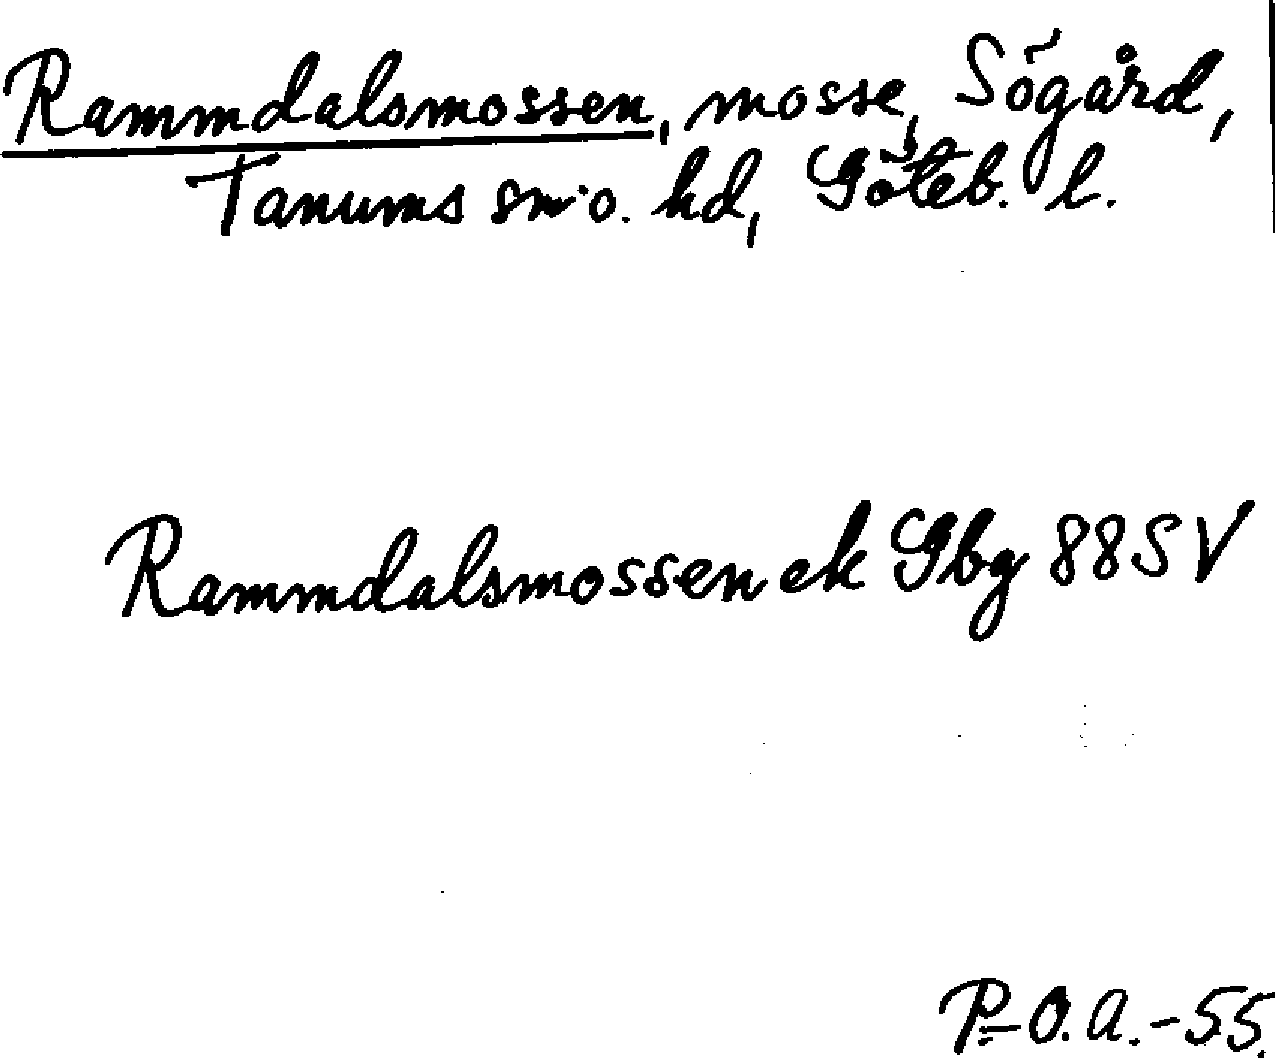 Rammdalsmossen, mosse, Sögård,
Tanums sn o. hd, Göteb. l.
Rammdalsmossen ek Gbg 88 SV
P-O.A.-55.